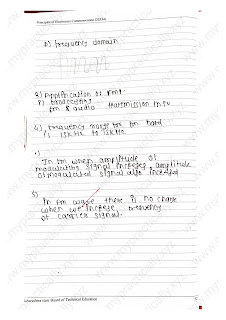 Principles of Electronic Communication (22334)
b) frequency domain
3) Application of fm:
1) brodcasting
fm & audio transmission in TV
4) frequency range for fm band
is
to
1)
In fm when amplitude of
modulating signal increses, amplitude
of modulated signal also
5)
In fm wave there is no change
when we increse frequency
of carrier signal.
Maharashtra state Board of Technical Education